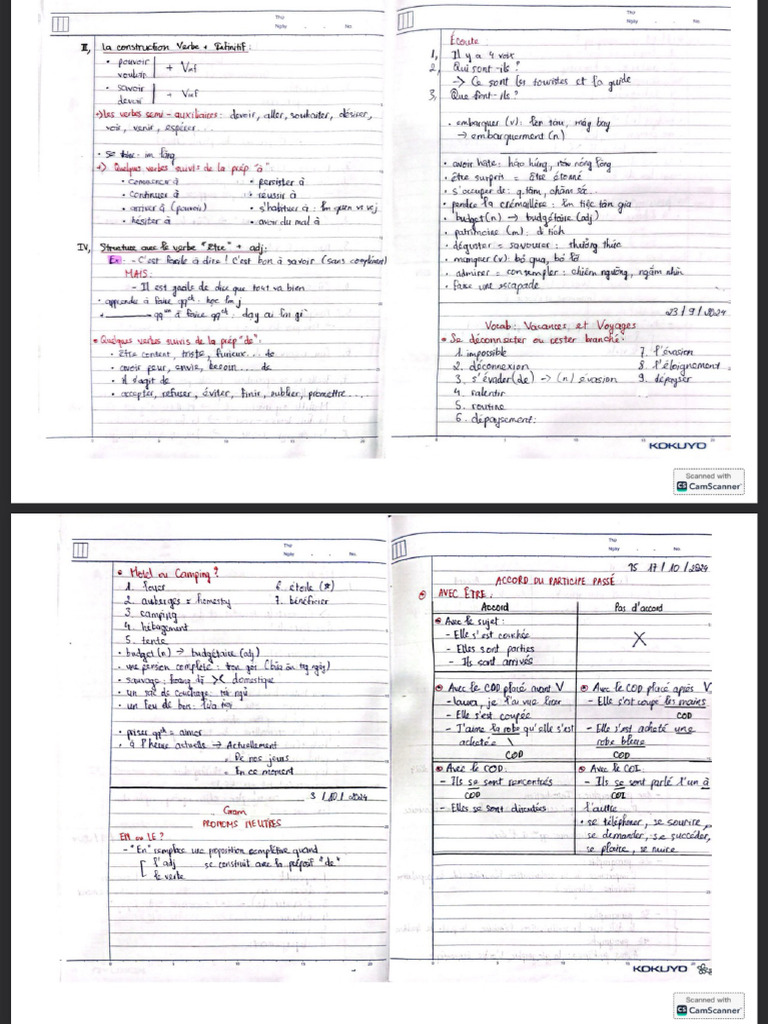 Thứ
Ngày . . No.
II, La construction Verbe + Infinitif:
• pouvoir
vouloir + Vinf
• savoir
devoir + Vinf
+) Les verbes semi-auxiliaires: devoir, aller, souhaiter, désirer,
voir, venir, espérer...
• se taire: im lặng
+) Quelques verbes suivis de la prép "à":
• commencer à • persister à
• continuer à • réussir à
• arriver à (pouvoir) • s'habituer à: làm quen vi vj
• hésiter à • avoir du mal à
IV, Structure avec le verbe "être" + adj:
Ex: - C'est facile à dire! C'est bon à savoir (sans complément)
MAIS:
- Il est facile de dire que tout va bien
• apprendre à faire qqch: học làm j
• qqun à faire qqch: dạy ai làm gì
• Quelques verbes suivis de la prép "de":
• être content, triste, furieux... de
• avoir peur, envie, besoin.... de
• il s'agit de
• accepter, refuser, éviter, finir, oublier, promettre....
Thứ
Ngày . . No.
Écoute:
1, Il y a 4 voix
2, Qui sont-ils?
→ Ce sont les touristes et la guide
3, Que font-ils?
• embarquer (v): lên tàu, máy bay
→ embarquement (n)
• avoir hâte: háo hức, nôn nóng
• être surpris = être étonné
• s'occuper de: q.tâm, chăm sóc
• pendre la crémaillère: làm tiệc tân gia
• budget (n) → budgétaire (adj)
• patrimoine (m): di tích
• déguster = savourer: thưởng thức
• manquer (v): bỏ qua, bỏ lỡ
• admirer = contempler: chiêm ngưỡng, ngắm nhìn
• faire une escapade
23/9/2024
Vocab: Vacances et Voyages
• Se déconnecter ou rester branché:
1. impossible 7. l'évasion
2. déconnexion 8. l'éloignement
3. s'évader (de) → (n) évasion 9. dépayser
4. ralentir
5. routine
6. dépaysement:
KOKUYO
Scanned with
CS CamScanner
Thứ
Ngày . . No.
• Hotel ou Camping?
1. foyer 6. étoile (*)
2. auberges = homesty 7. bénéficier
3. camping
4. hébergement
5. tente
• budget (n) → budgétaire (adj)
• une pension complète: trọn gói
• sauvage: hoang dã >< domestique
• un sac de couchage: túi ngủ
• un feu de bois: lửa trại
• priser qqch = aimer
• à l'heure actuelle → Actuellement
• De nos jours
• En ce moment
3/10/2024
Gram
PRONOMS NEUTRES
EN ou LE?
- "En" remplace une proposition complétive quand
l'adj se construit avec la préposit° "de"
le verbe
Thứ
Ngày . . No.
T5 17/10/2024
ACCORD DU PARTICIPE PASSÉ
• AVEC ÊTRE:
Accord Pas d'accord
• Avec le sujet: X
- Elle s'est couchée
- Elles sont parties
- Ils sont arrivés
• Avec le COD placé avant V • Avec le COD placé après V
- Laura, je l'ai vue hier - Elle s'est coupé les mains
COD
- Elle s'est coupée - Elle s'est acheté une
- J'aime la robe qu'elle s'est robe bleue
achetée COD
COD
• Avec le COD: • Avec le COI:
- Ils se sont rencontrés - Ils se sont parlé l'un à
COD COI
- Elles se sont discutées l'autre
• se téléphoner, se sourire,
se demander, se succéder,
se plaire, se nuire
KOKUYO
Scanned with
CS CamScanner